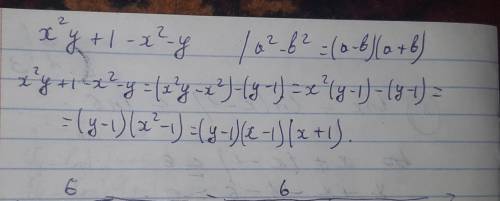 x²y + 1 - x² - y / a² - b² = (a - b)(a + b)
x²y + 1 - x² - y = (x²y - x²) - (y - 1) = x²(y - 1) - (y - 1) =
= (y - 1)(x² - 1) = (y - 1)(x - 1)(x + 1).
6 6